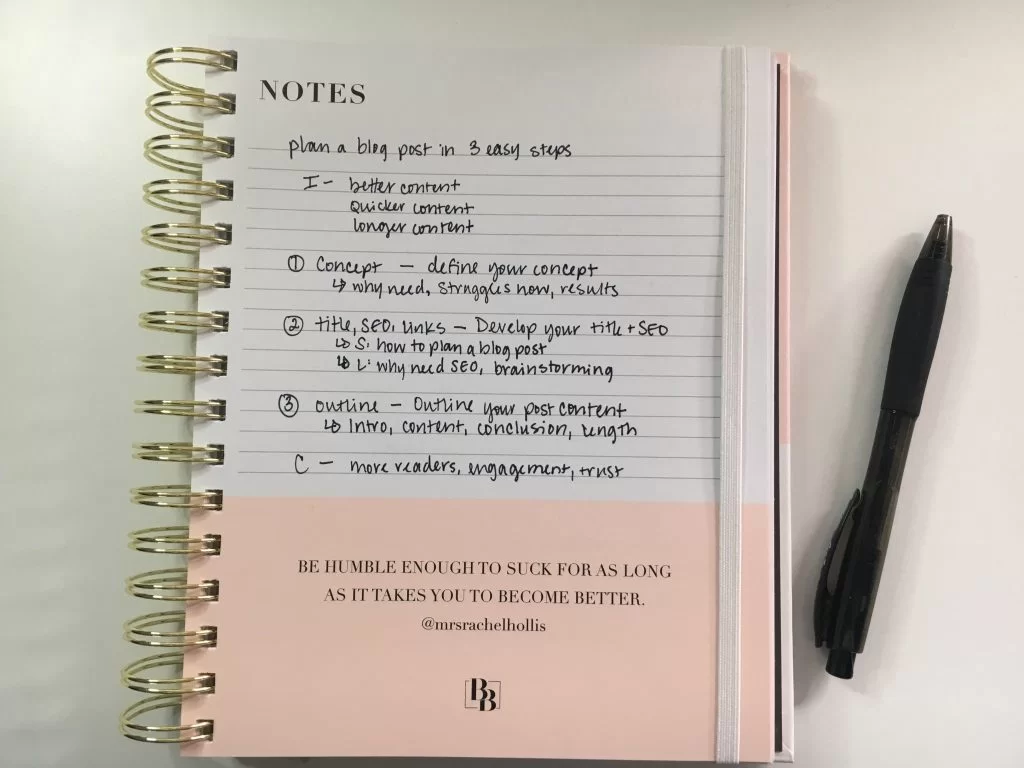 NOTES
plan a blog post in 3 easy steps
I - better content
Quicker content
longer content
① Concept - define your concept
↳ why need, struggles now, results
② title, SEO, links - Develop your title + SEO
↳ S: how to plan a blog post
↳ L: why need SEO, brainstorming
③ outline - Outline your post content
↳ Intro, content, conclusion, length
C - more readers, engagement, trust
BE HUMBLE ENOUGH TO SUCK FOR AS LONG
AS IT TAKES YOU TO BECOME BETTER.
@mrsrachelhollis
BB